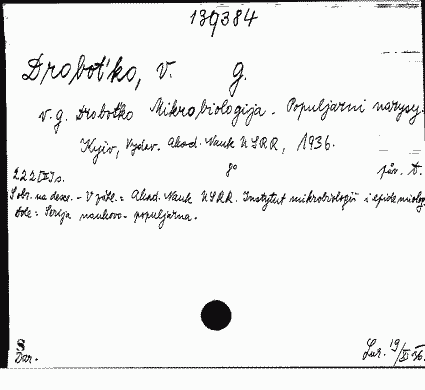 139384
Drobot'ko, V. G.
V. G. Drobotko Mikrobiologija. Populjarni narysy.
Kyiv, Vydav. Akad. Nauk USRR, 1936.
222 [II] s. 8° pův. t.
Sobr. na desce. - V záhl.: Akad. Nauk USRR. Instytut mikrobiologii i epidemiolog.
dole: Serija naukovo-populjarna.
S
Dar. Lur. 19/XI 36.